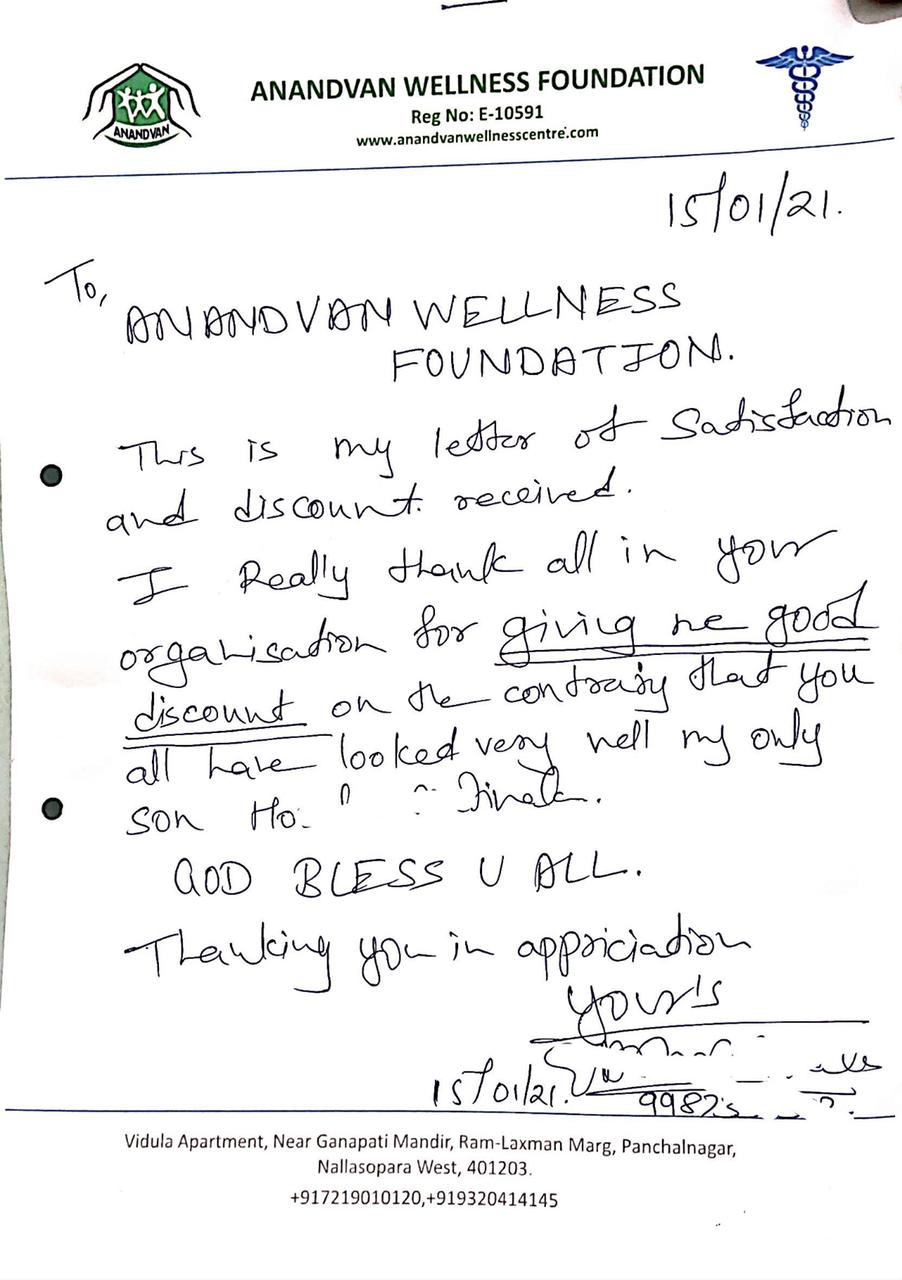 ANANDVAN WELLNESS FOUNDATION
Reg No: E-10591
www.anandvanwellnesscentre.com
ANANDVAN
15/01/21.
To,
ANANDVAN WELLNESS
FOUNDATION.
This is my letter of Satisfaction
and discount received.
I Really thank all in your
organisation for giving me good
discount on the contrary that you
all have looked very well my only
son
GOD BLESS U ALL.
Thanking you in appriciation
Your's
15/01/21.
Vidula Apartment, Near Ganapati Mandir, Ram-Laxman Marg, Panchalnagar,
Nallasopara West, 401203.
+917219010120,+919320414145